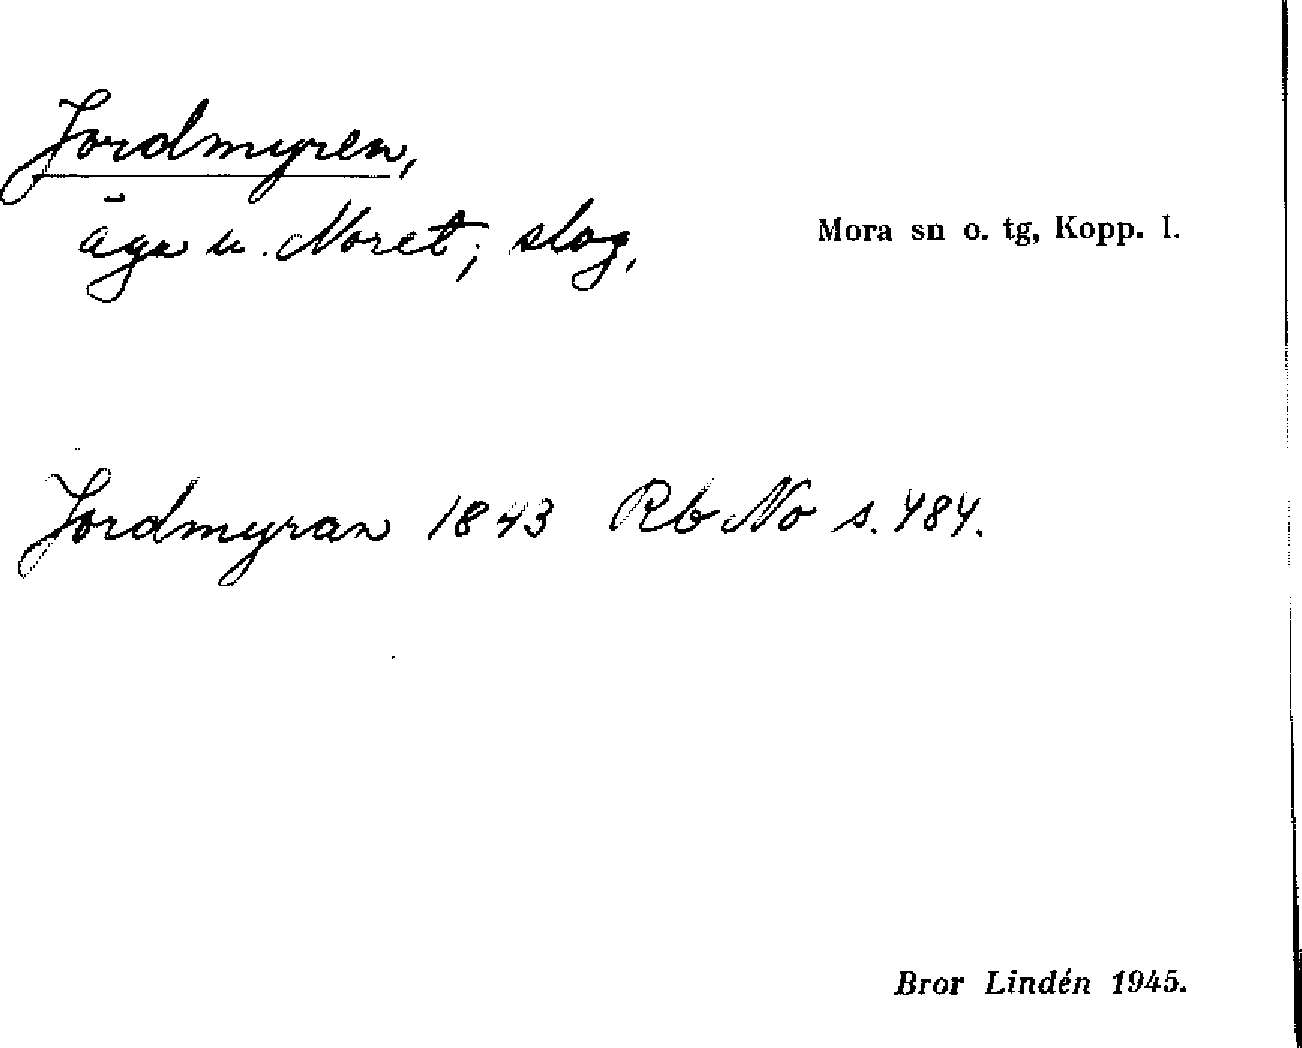 Jordmyren,
äga u. Noret; slog,
Mora sn o. tg, Kopp. l.
Jordmyran 1843 Rb No s. 484.
Bror Lindén 1945.